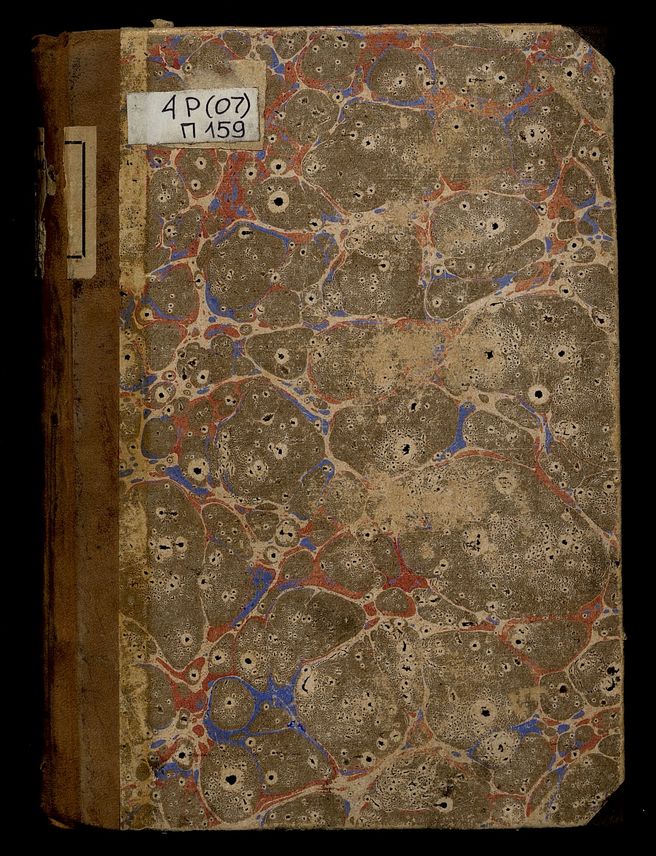 4Р(07)
П159